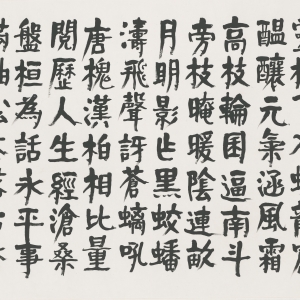 醞釀元氣涵風霜
高枝輪囷逼南斗
旁枝晻暖陰連畝
月明影黑蛟蟠
濤飛聲訝蒼螭吼
唐槐漢柏相比量
閱歷人生經滄桑
盤桓為話永平事